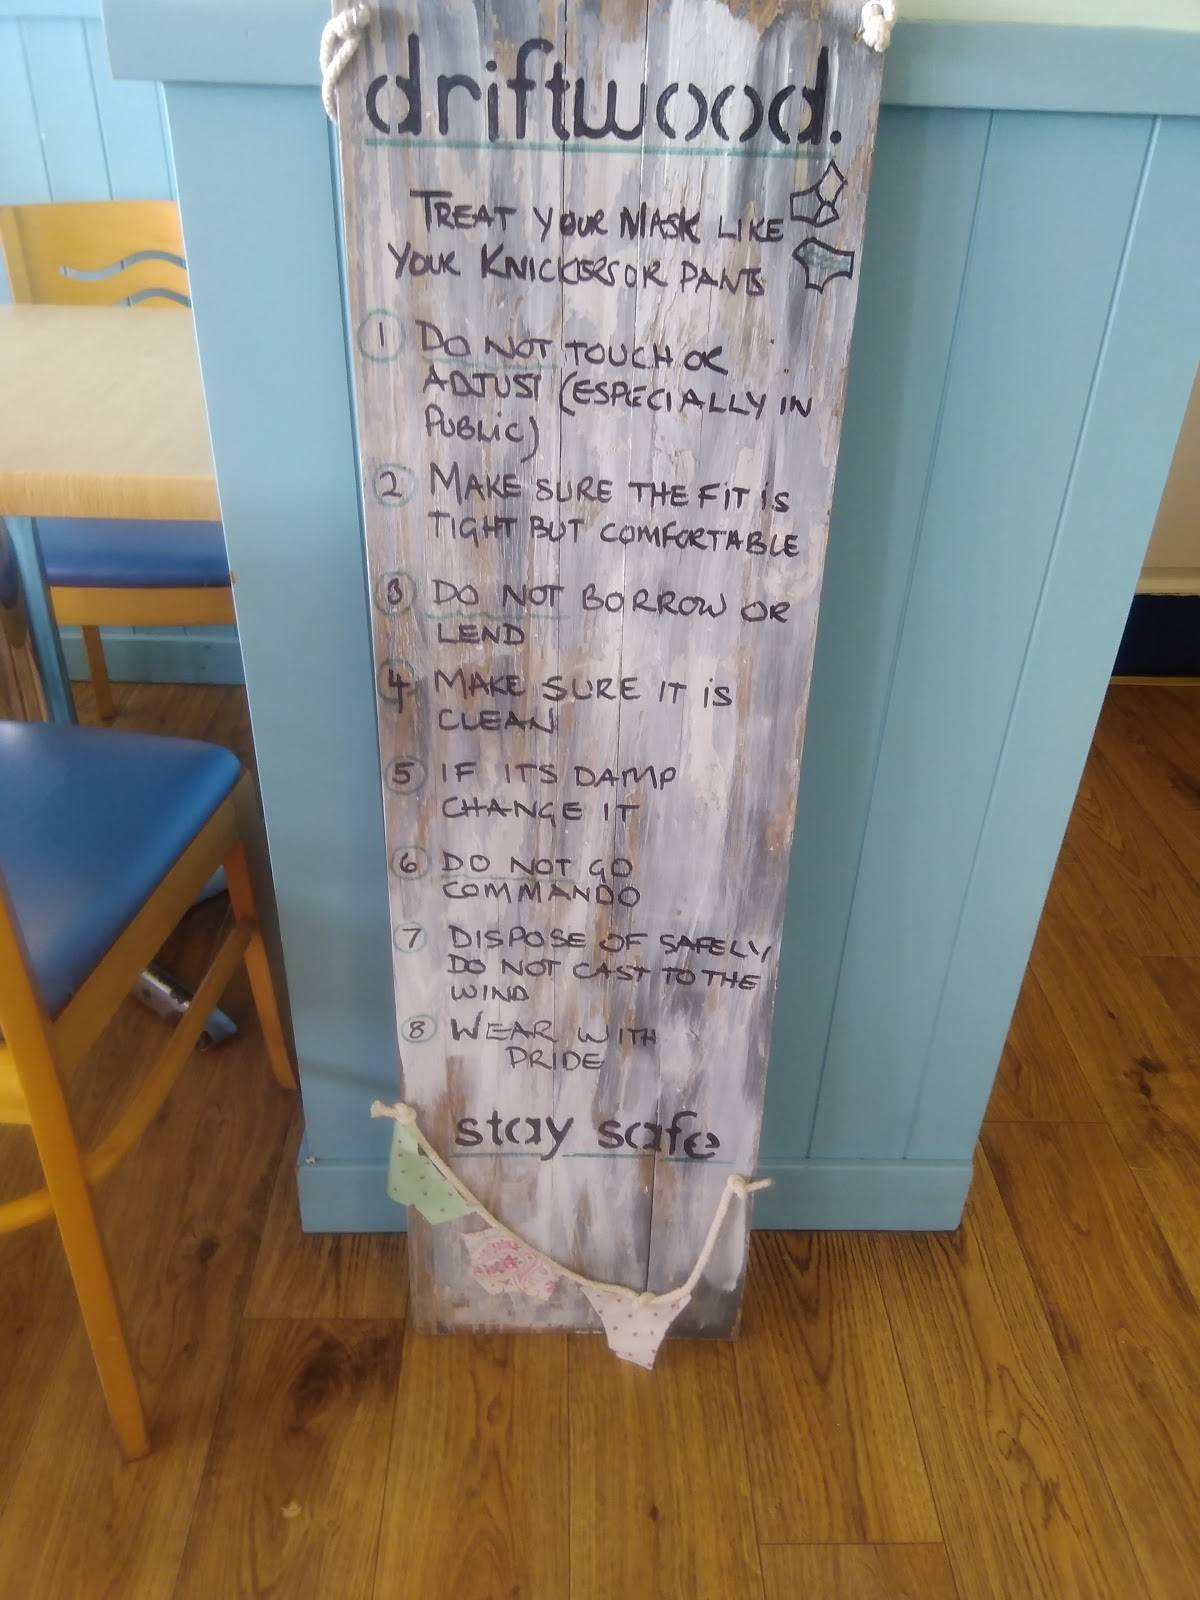 driftwood.
TREAT YOUR MASK LIKE
YOUR KNICKERS OR PANTS
1 DO NOT TOUCH OR
ADJUST (ESPECIALLY IN
PUBLIC)
2 MAKE SURE THE FIT IS
TIGHT BUT COMFORTABLE
3 DO NOT BORROW OR
LEND
4 MAKE SURE IT IS
CLEAN
5 IF ITS DAMP
CHANGE IT
6 DO NOT GO
COMMANDO
7 DISPOSE OF SAFELY
DO NOT CAST TO THE
WIND
8 WEAR WITH
PRIDE
stay safe